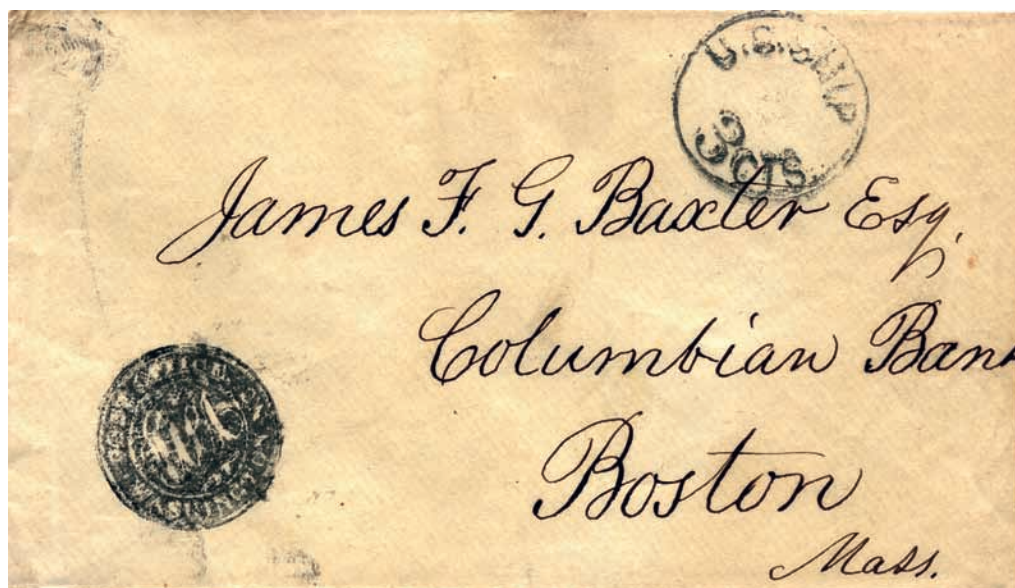 U.S. SHIP
3 CTS.
James F. G. Baxter Esq.
Columbian Bank
Boston
Mass.